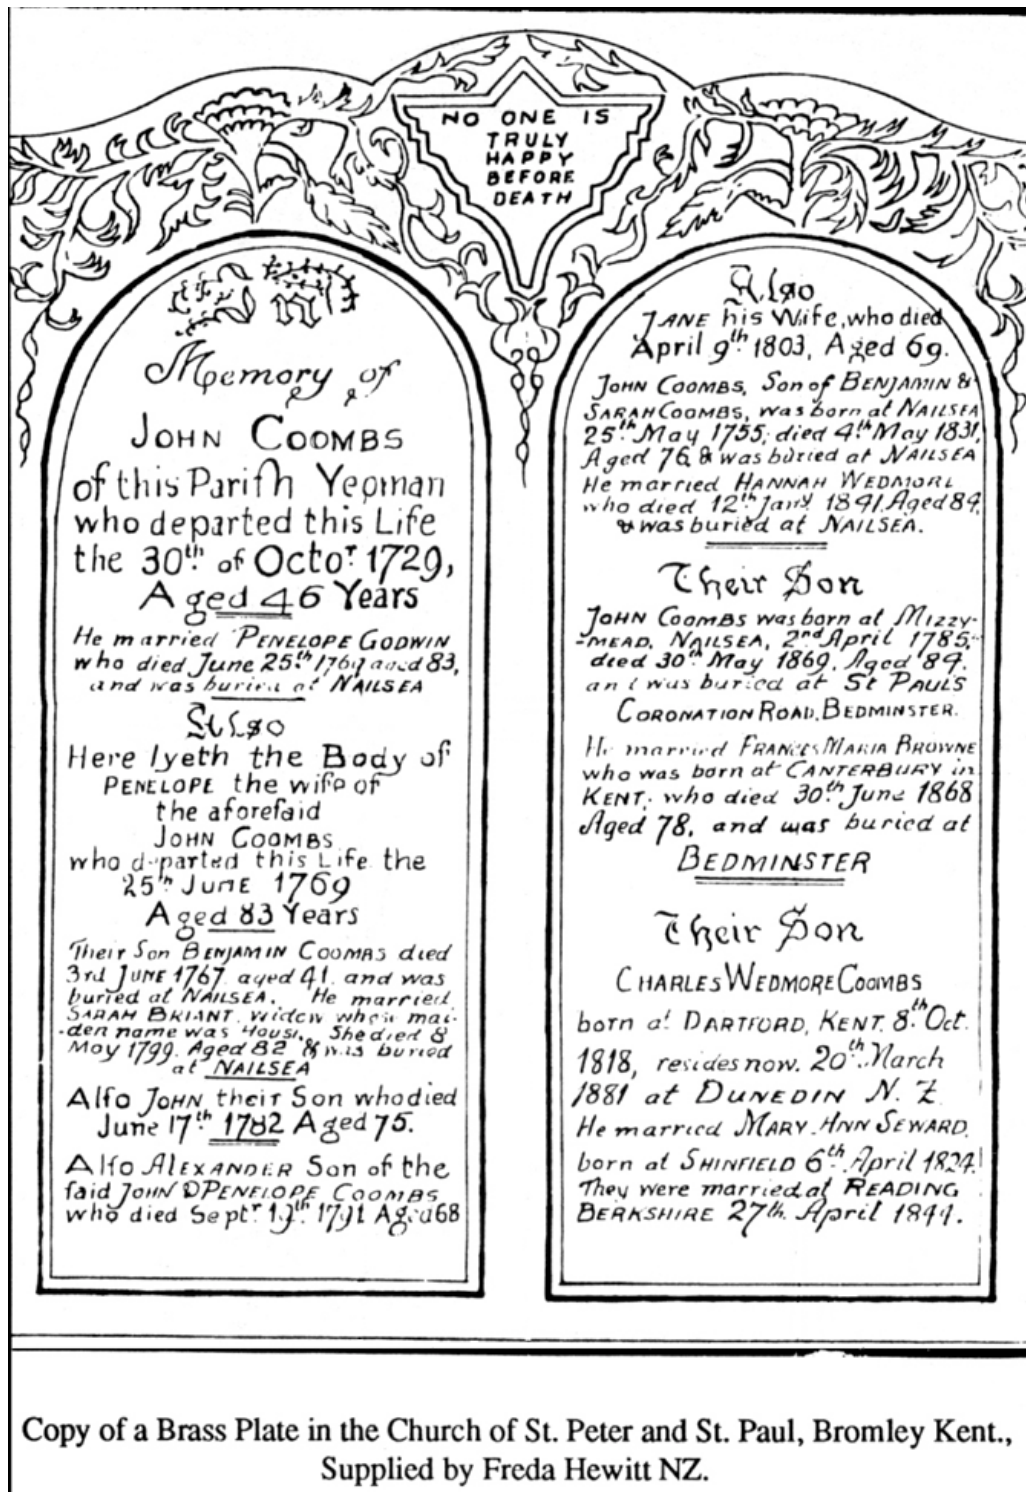 NO ONE IS
TRULY
HAPPY
BEFORE
DEATH
In
Memory of
JOHN COOMBS
of this Parish Yeoman
who departed this Life
the 30th of Octor 1729,
Aged 46 Years
He married PENELOPE GODWIN
who died June 25th 1769 aged 83,
and was buried at NAILSEA
Also
Here lyeth the Body of
PENELOPE the wife of
the aforesaid
JOHN COOMBS
who departed this Life the
25th JUNE 1769
Aged 83 Years
Their Son BENJAMIN COOMBS died
3rd JUNE 1767. aged 41. and was
buried at NAILSEA. He married
SARAH BRIANT. widow whose mai-
-den name was House. She died 8
May 1799. Aged 82 & was buried
at NAILSEA
Alſo JOHN their Son who died
June 17th 1782 Aged 75.
Alſo ALEXANDER Son of the
ſaid JOHN & PENELOPE COOMBS
who died Septr 19th 1791 Aged 68
Also
JANE his Wife, who died
April 9th 1803, Aged 69.
JOHN COOMBS, Son of BENJAMIN &
SARAH COOMBS, was born at NAILSEA
25th May 1755; died 4th May 1831,
Aged 76, & was buried at NAILSEA
He married HANNAH WEDMORE
who died 12th Jany 1841. Aged 84,
& was buried at NAILSEA.
Their Son
JOHN COOMBS was born at MIZZY-
-MEAD, NAILSEA, 2nd April 1785.
died 30th May 1869. Aged 84.
and was buried at ST PAULS
CORONATION ROAD, BEDMINSTER.
He married FRANCES MARIA BROWNE
who was born at CANTERBURY in
KENT, who died 30th June 1868
Aged 78, and was buried at
BEDMINSTER
Their Son
CHARLES WEDMORE COOMBS
born at DARTFORD, KENT. 8th Oct.
1818, resides now. 20th March
1881 at DUNEDIN N. Z.
He married MARY ANN SEWARD.
born at SHINFIELD 6th April 1824.
They were married at READING
BERKSHIRE 27th April 1844.
Copy of a Brass Plate in the Church of St. Peter and St. Paul, Bromley Kent.,
Supplied by Freda Hewitt NZ.